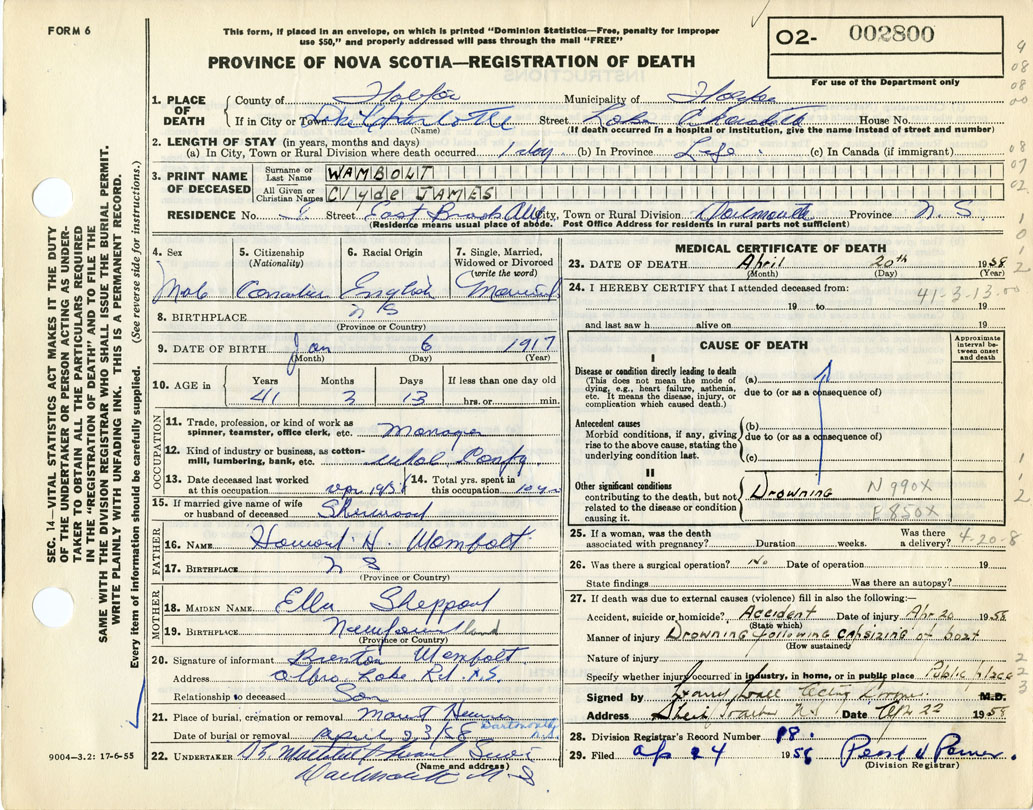 FORM 6
This form, if placed in an envelope, on which is printed "Dominion Statistics—Free, penalty for improper
use $50," and properly addressed will pass through the mail "FREE"
PROVINCE OF NOVA SCOTIA—REGISTRATION OF DEATH
02- 002800
For use of the Department only
SEC. 14—VITAL STATISTICS ACT MAKES IT THE DUTY
OF THE UNDERTAKER OR PERSON ACTING AS UNDER-
TAKER TO OBTAIN ALL THE PARTICULARS REQUIRED
IN THE "REGISTRATION OF DEATH" AND TO FILE THE
SAME WITH THE DIVISION REGISTRAR WHO SHALL ISSUE THE BURIAL PERMIT.
WRITE PLAINLY WITH UNFADING INK. THIS IS A PERMANENT RECORD.
Every item of information should be carefully supplied. (See reverse side for instructions.)
1. PLACE OF DEATH County of Halifax Municipality of Halifax
If in City or Town Lake Charlotte Street Lake Charlotte House No.
(Name) (If death occurred in a hospital or institution, give the name instead of street and number)
2. LENGTH OF STAY (in years, months and days)
(a) In City, Town or Rural Division where death occurred 1 day (b) In Province Life (c) In Canada (if immigrant)
3. PRINT NAME OF DECEASED Surname or Last Name WAMBOLT
All Given or Christian Names Clyde JAMES
RESIDENCE No. 8 Street East Brook Ave City, Town or Rural Division Dartmouth Province N.S.
(Residence means usual place of abode. Post Office Address for residents in rural parts not sufficient)
4. Sex Male
5. Citizenship (Nationality) Canadian
6. Racial Origin English
7. Single, Married, Widowed or Divorced (write the word) Married
8. BIRTHPLACE N S
(Province or Country)
9. DATE OF BIRTH Jan 6 1917
(Month) (Day) (Year)
10. AGE in Years 41 Months 3 Days 13 If less than one day old hrs. or min.
OCCUPATION
11. Trade, profession, or kind of work as spinner, teamster, office clerk, etc. Manager
12. Kind of industry or business, as cotton-mill, lumbering, bank, etc.
13. Date deceased last worked at this occupation 14. Total yrs. spent in this occupation 10 yrs
15. If married give name of wife or husband of deceased Sherwood
FATHER
16. NAME Howard H. Wambolt
17. BIRTHPLACE N S
(Province or Country)
MOTHER
18. MAIDEN NAME Ella Sheppard
19. BIRTHPLACE Newfoundland
(Province or Country)
20. Signature of informant Brenton Wambolt
Address Albro Lake Rd. N.S.
Relationship to deceased Son
21. Place of burial, cremation or removal Mount
Date of burial or removal April 23/58 Dartmouth N.S.
22. UNDERTAKER
(Name and address)
Dartmouth N.S
9004—3.2: 17-6-55
MEDICAL CERTIFICATE OF DEATH
23. DATE OF DEATH April 20th 1958
(Month) (Day) (Year)
24. I HEREBY CERTIFY that I attended deceased from:
41-3-13
19 to 19
and last saw h alive on 19
CAUSE OF DEATH
Approximate interval between onset and death
I
Disease or condition directly leading to death
(This does not mean the mode of dying, e.g., heart failure, asthenia, etc. It means the disease, injury, or complication which caused death.)
(a)
due to (or as a consequence of)
Antecedent causes
Morbid conditions, if any, giving rise to the above cause, stating the underlying condition last.
(b)
due to (or as a consequence of)
(c)
II
Other significant conditions
contributing to the death, but not related to the disease or condition causing it.
Drowning N990X
E850X
25. If a woman, was the death associated with pregnancy? Duration weeks. Was there a delivery? 4-20-8
26. Was there a surgical operation? No Date of operation 19
State findings Was there an autopsy?
27. If death was due to external causes (violence) fill in also the following:—
Accident, suicide or homicide? Accident Date of injury Apr 20 1958
(State which)
Manner of injury Drowning following capsizing of boat
(How sustained)
Nature of injury
Specify whether injury occurred in industry, in home, or in public place Public place
Signed by Acting Coroner M.D.
Address Date Apr 22 1958
28. Division Registrar's Record Number
29. Filed Apr 24 1958
(Division Registrar)